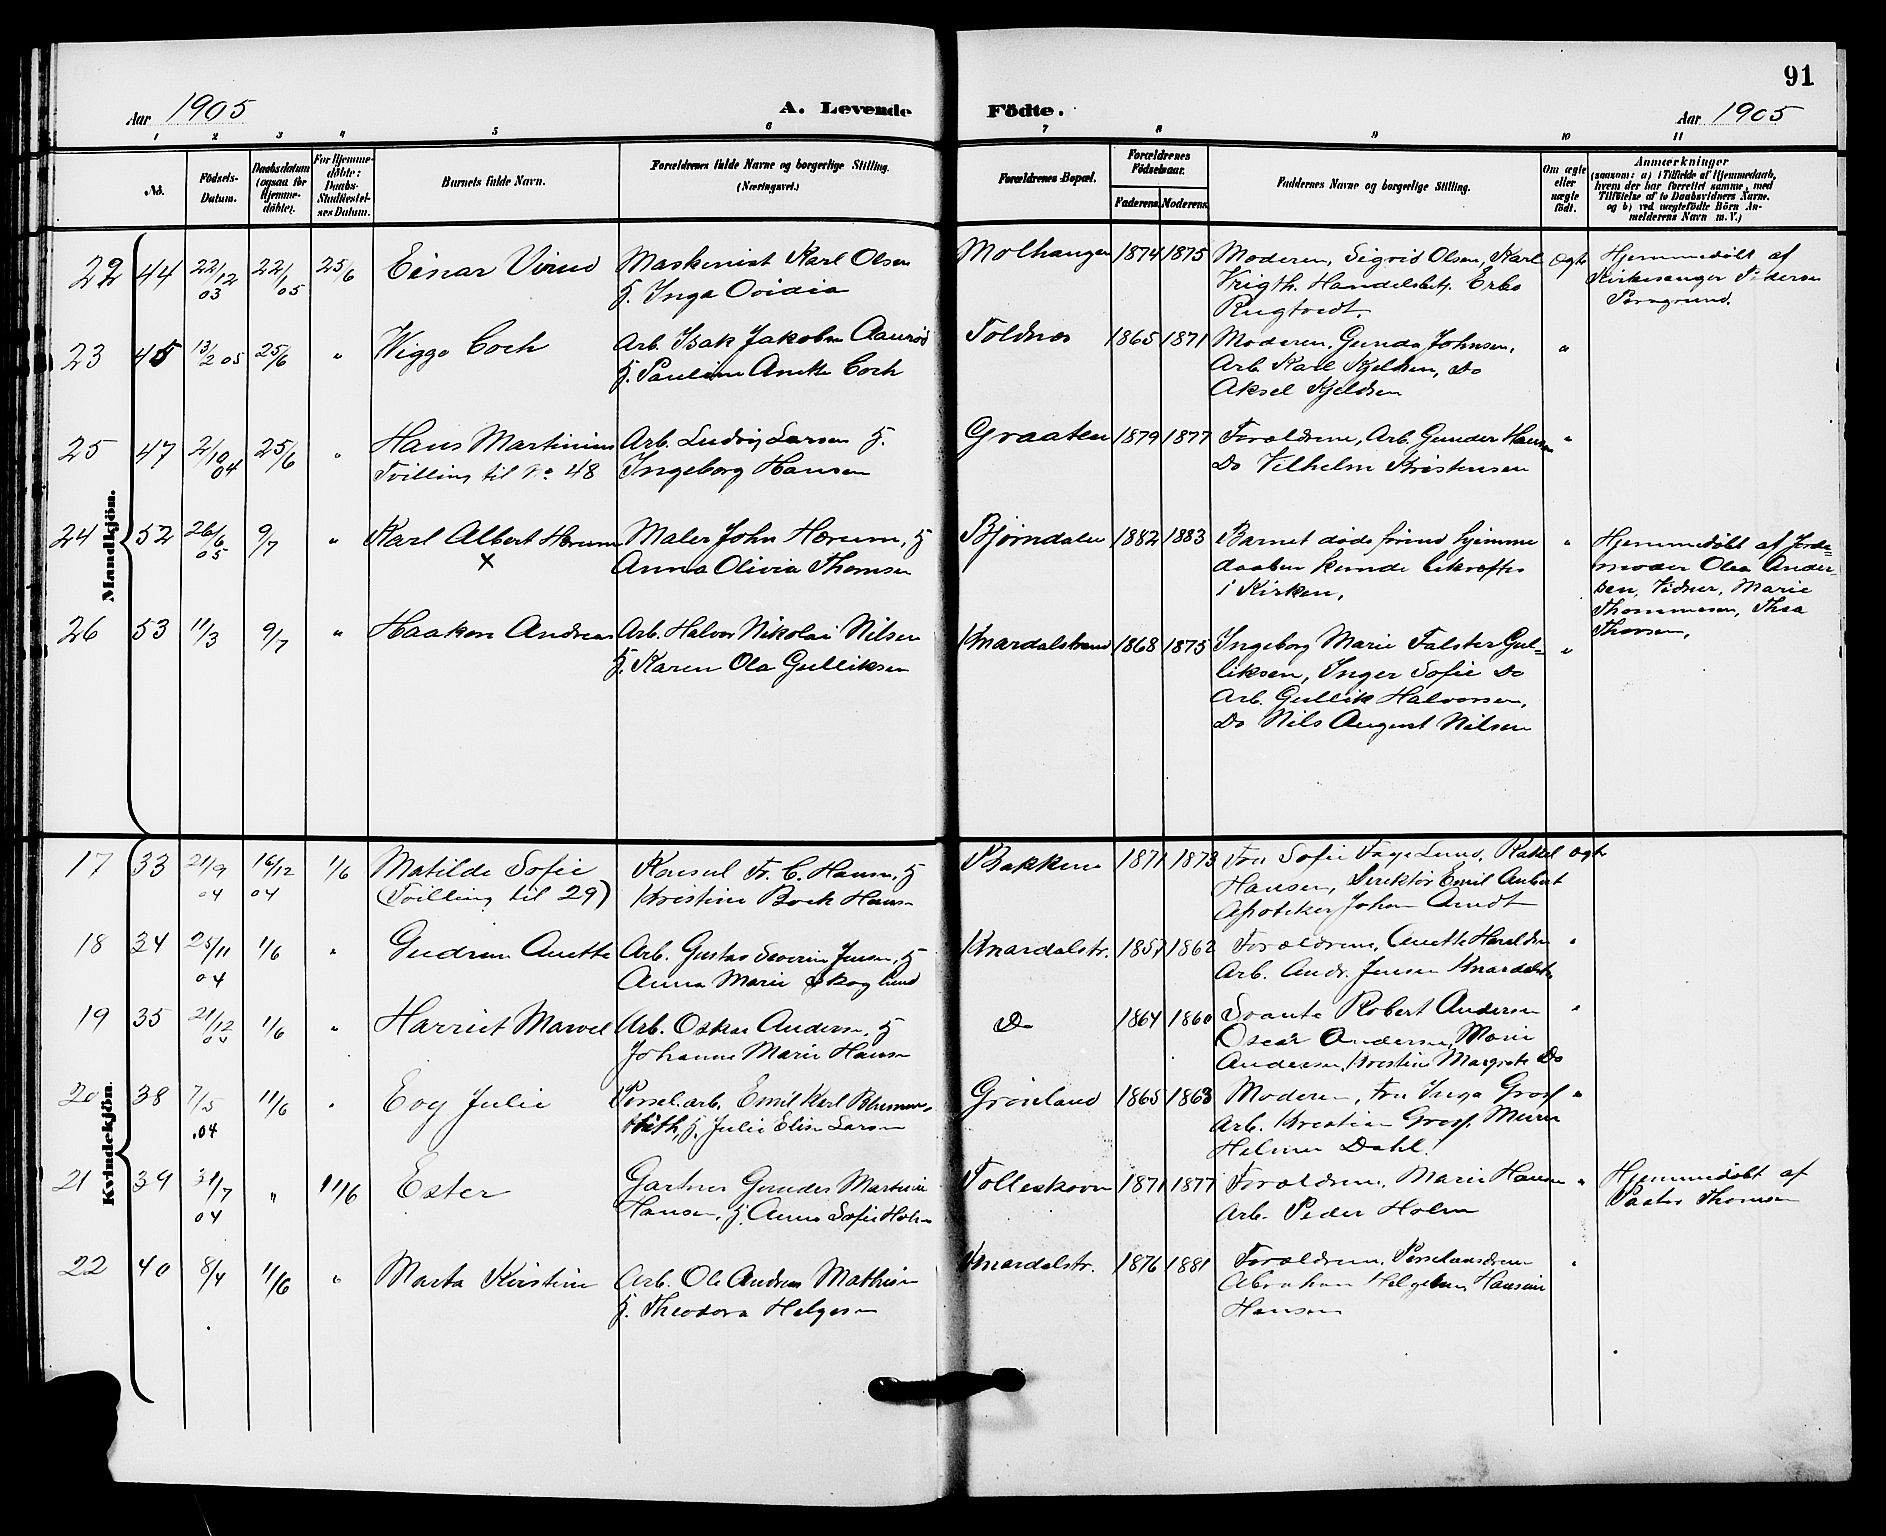 91
Aar 1905 A. Levende Födte. Aar 1905
1 2 3 4 5 6 7 8 9 10 11
No.
Födsels-
Datum.
Daabsdatum
(ogsaa for
Hjemme-
døbte).
For Hjemme-
døbte:
Daabs-
Stadfæstel-
ses Datum.
Barnets fulde Navn.
Forældrenes fulde Navne og borgerlige Stilling.
(Næringsvei.)
Forældrenes Bopæl.
Forældrenes
Födselsaar.
Faderens. Moderens.
Faddernes Navne og borgerlige Stilling.
Om ægte
eller
uægte
født.
Anmærkninger
(saasom: a) i Tilfælde af Hjemmedaab,
hvem der har forrettet samme, med
Tilföielse af to Daabsvidners Navne.
og b) ved uægtefödte Börn An-
melderens Navn m. V.)
Mandkjön.
22 44 22/12 03 22/1 05 25/6 Einar
Maskinist Karl Olsen
H. Inga Ovidia
Molhaugen 1874 1875
Moderen, Sigrid Olsen, Karl
Handelsbetj. Erbo
Rugtvedt.
Ægte
Hjemmedøbt af
Kirkesanger Pedersen
Porsgrund.
23 45 13/2 05 25/6 " Wiggo Coch
Arb. Isak Jakobsen Aaurød
H. Pauline Anette Coch
Toldnes 1865 1871
Moderen, Gunda Johnsen,
Arb. Karl Kjeldsen, Do
Aksel Kjeldsen
"
25 47 2/10 04 25/6 " Hans Martinius
Tvilling til No 48
Arb. Ludvig Larsen H.
Ingeborg Hansen
Graaten 1879 1877
Forældrene, Arb. Gunder Hansen
Do Vilhelm Kristensen
"
24 52 26/6 05 9/7 " Karl Albert Hærum
X
Maler John Hærum, H
Anna Olivia Thomsen
Bjørndalen 1882 1883
Barnet døde førend hjemme
daaben kunde bekræftes
i Kirken,
"
Hjemmedøbt af Jorde=
moder Olea Ander-
sen, Vidner, Marie
Thommesen, Thea
Thorsen,
26 53 11/3 9/7 " Haakon Andreas
Arb. Halvor Nikolai Nilsen
H. Karen Ola Gulliksen
Knardalstrand 1868 1875
Ingeborg Marie Falster Gul-
liksen, Inger Sofie Do
Arb. Gullik Halvorsen,
Do Nils August Nilsen
"
Kvindekjön.
17 33 21/9 04 16/12 04 1/6 Matilde Sofie
(Tvilling til 29)
Konsul Fr. C. Hansen, H
Kristine Bock Hansen
Bakken 1871 1873
Fru Sofie Faye Lund, Rakel
Hansen, Direktør Emil Aubert
Apoteker Johan Arndt
Ægte
18 34 25/11 04 1/6 " Gudrun Anette
Arb. Gustav Severin Jensen, H
Anna Marie Skoglund
Knardalstr. 1857 1862
Forældrene, Anette Haraldsen
Arb. Andr. Jensen Knardalstr
"
19 35 21/12 04 1/6 " Harriet Marvel
Arb. Oskar Andersen, H
Johanne Marie Hansen
Do 1864 1860
Svante Robert Andersen
Oscar Andersen, Marie
Andersen, Kristine Margrete Do
"
20 38 7/5 .04 11/6 " Eog Julie
Porsel. arb. Emil Karl
H. Julie Elise Larsen
Grønland 1865 1863
Moderen, Fru Inga Grosf
Arb. Kristian Grosf, Murer
Helmer Dahl.
"
21 39 31/7 04 " 11/6 Ester
Gartner Gunder Martin
Hansen, H. Anna Sofie Holm
Tolleskoven 1871 1877
Forældrene, Marie Hansen
Arb. Peder Holm
"
Hjemmedøbt af
Pastor Thomsen
22 40 8/4 11/6 " Marta Kirstine
Arb. Ole Andreas Mathisen
H. Theodora Helgesen
Knardalstr. 1876 1881
Forældrene,
Abraham Helgesen,
Hansen
"